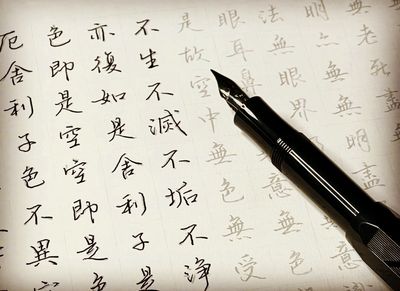 老死盡
明亦無無明盡
法無眼界
眼耳鼻意無色
是故空中無色無受
不生不滅不垢不淨
亦復如是舍利子是
色即是空空即是色
厄舍利子色不異空